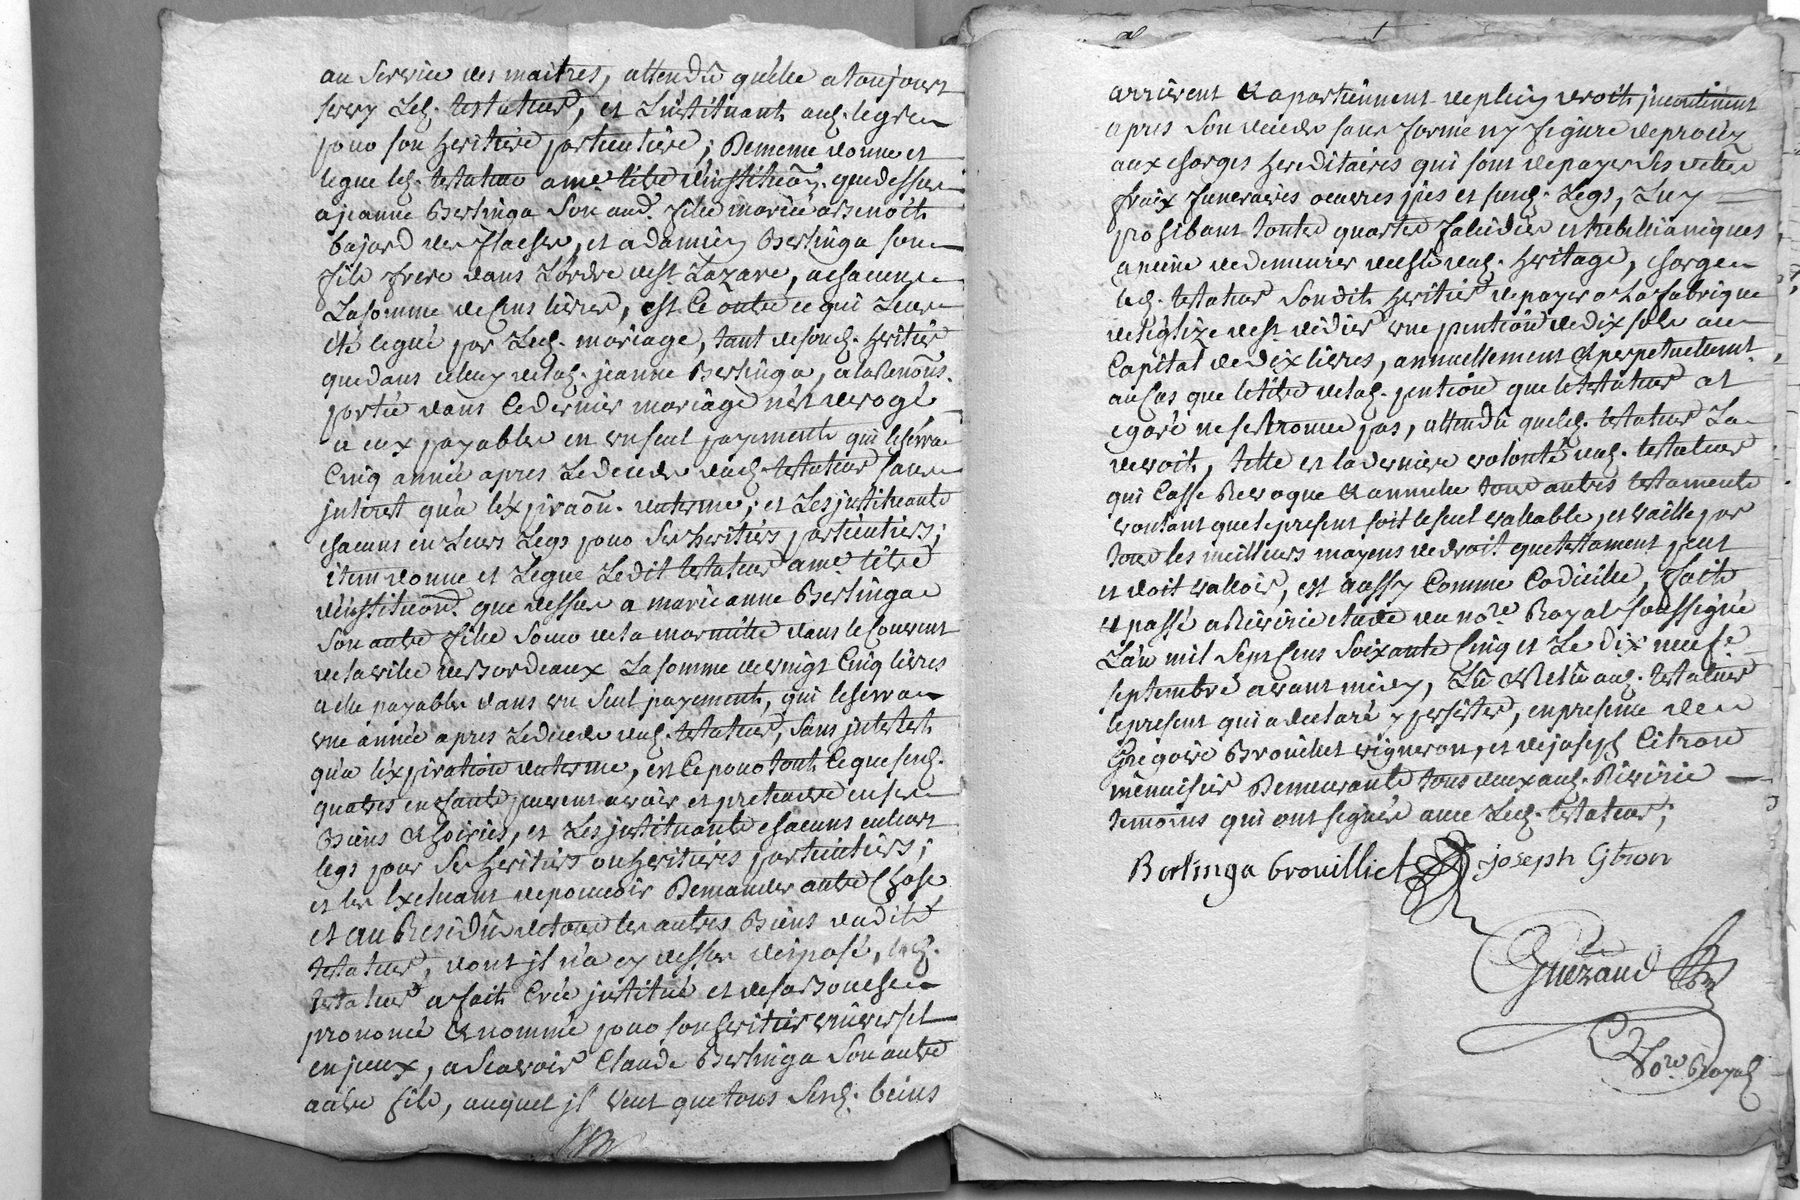 au service des maitres, attendû quélle a toujours
servy Led. testateur, et L'instituant aud. legs en
pour son heritiere particuliere; De meme donne et
legue led. testateur a me. titre d'institûon. que dessus
a jeanne Berlinga Son aud. fille mariée a Benoit
bajard de flacher, et a damien Berlinga son
fils frere dans L'ordre de st. Lazare, a chacun
La somme de Cens livres, est Ce outre ce qui Leur
été legué par Led. mariage, tant de soud. heritier
que dans celuy de lad. jeanne Berlinga, a la Renons.
portée dans Ce dernier mariage n'est derogé
a eux payables en un seul payement qui se ferra
Cinq année apres Le decede dud. testateur sans
interest qu'a l'expiraôn. du terme; et Les instituants
chacuns en Leurs Legs pour Ses heritiers particuliers;
item donne et Legue Ledit testateur a me. titre
d'institution. que dessus a marie anne Berlinga
Son autre fille Soeur de la dans le Couvent
de la ville de Bordeaux La somme de vingt Cinq livres
a elle payables dans un Seul payement, qui se ferra
une année apres Le decede dud. testateur, Sans interest
qu'a l'expiration du terme, est Ce pour tout Ce que sesd.
quatres enfants peuvent avoir et pretendre en ses
Biens & hoiries, et Les instituants chacuns en leurs
legs pour Ses heritiers ou heritieres particuliers;
et les Excluant de pouvoir Demander autre Chose
et au Residû de tous les autres Biens dudit
testateur, dont jl n'a cy dessus disposé, led.
testateur a fait Créé institué et de sa Bouche
prononcé & nommé pour son heritier universel
en jceux, a Scavoir Claude Berlinga Son autre
autre fils, auquel jl veut que tous Sesd. beins
arrivent & apartiennent de plein droit incontinent
apres Son decede sans forme ny figure de procés
aux charges hereditaires qui sont de payer Ses dettes
fraix funeraires oeuvres pies et susd. Legs, Luy
prohibant toutes quartes falcidies et trebellianiques
a peine de demeurer dechû dud. heritage, charge
led. testateur Son dit heritier de payer a La fabrique
de l'églize de st. didier une pention de dix sols au
Capital de dix livres, annuellement & perpetuellement
au Cas que le titre de lad. pention que le testateur at
egaré ne se trouve pas, attendû que led. testateur La
devoit, telle est la derniere volonté dud. testateur
qui Casse Revoque & annulle tous autres testaments
voulant que le present soit le seul vallable, et vaille par
tous les meilleurs moyens de droit que testament peut
et doit valloir, est aussy Comme Codicille, fait
et passé a Riverie etude du nore. Royal soussigné
L'an mil Sept Cens Soixante Cinq et Le dix neufe.
septembre avant midy, Lû & Relû aud. testateur
le present qui a declaré y persister, en presence de
Gregoire Brouillet vigneron, et de joseph Citron
menuisier Demeurants tous deux aud. Riverie
temoins qui ont signés avec Led. testateur;
Berlinga brouilliet joseph Citron
Guezaud
Nore. Royal